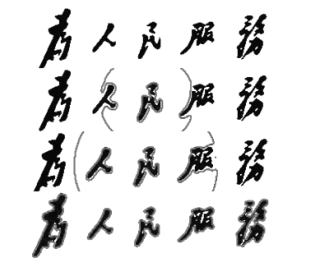 為人民服務
為人民服務
為人民服務
為人民服務